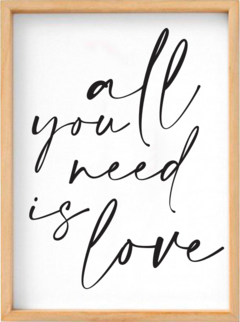 all
you
need
is
love